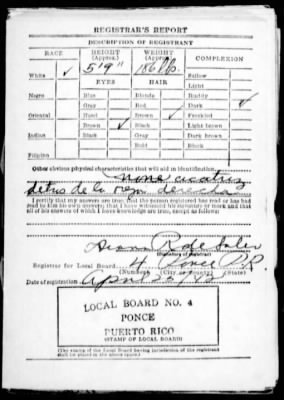 REGISTRAR'S REPORT
DESCRIPTION OF REGISTRANT
RACE HEIGHT (Approx.) WEIGHT (Approx.) COMPLEXION
White ✓ 5'9" 186 lbs. Sallow
Light
EYES HAIR Ruddy
Negro Blue Blonde Dark ✓
Gray Red Freckled
Oriental Hazel Brown ✓ Light brown
Brown ✓ Black Dark brown
Indian Black Gray Black
Bald
Filipino
Other obvious physical characteristics that will aid in identification
none cicatriz
detras de la oreja derecha
I certify that my answers are true; that the person registered has read or has had
read to him his own answers; that I have witnessed his signature or mark and that
all of his answers of which I have knowledge are true, except as follows:
R de Soler
(Signature of registrar)
Registrar for Local Board 4 Ponce P.R
(Number) (City or county) (State)
Date of registration April
LOCAL BOARD NO. 4
PONCE
PUERTO RICO
(STAMP OF LOCAL BOARD)
(The stamp of the Local Board having jurisdiction of the registrant
shall be placed in the above space.)